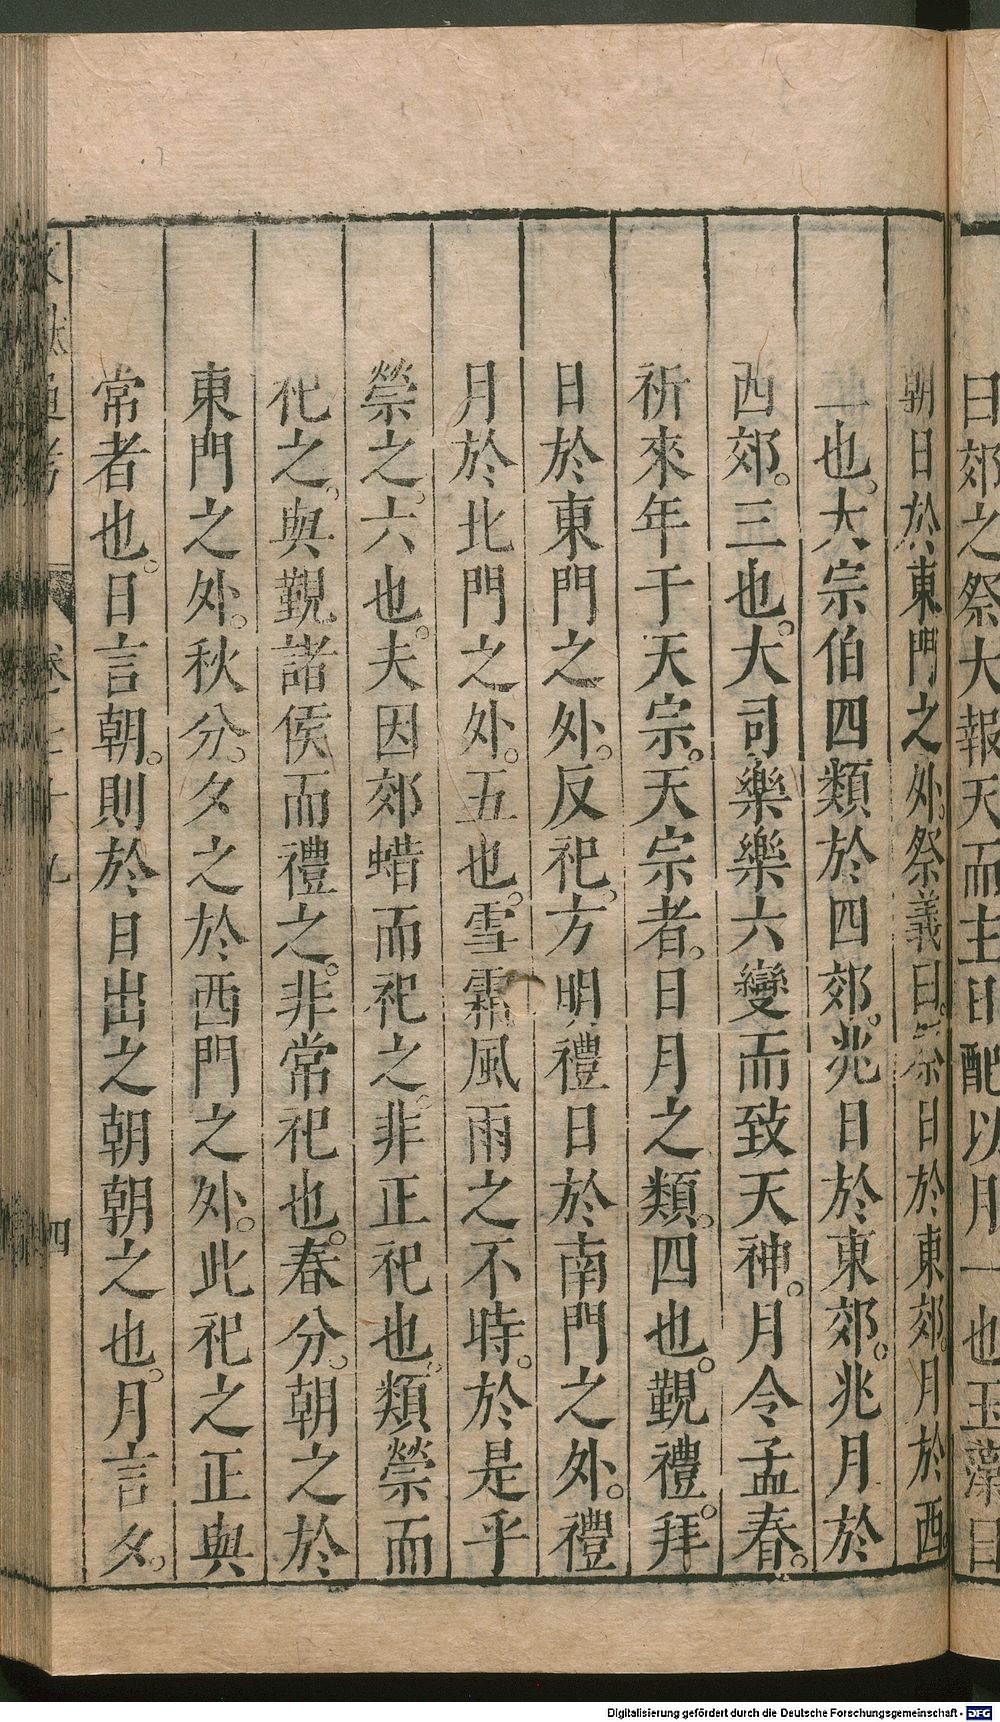 日郊之祭大報天而主日配以月一也玉藻日
朝日於東門之外。祭義曰。祭日於東郊。月於西
二也。大宗伯四類於四郊。兆日於東郊。兆月於
西郊。三也。大司樂樂六變而致天神。月令孟春。
祈來年于天宗。天宗者。日月之類。四也。覲禮。拜
日於東門之外。反祀。方明禮日於南門之外。禮
月於北門之外。五也。雪霜風雨之不時。於是乎
禜之。六也。夫因郊蜡而祀之。非正祀也。類禜而
祀之。與覲諸侯而禮之。非常祀也。春分。朝之於
東門之外。秋分。夕之於西門之外。此祀之正與
常者也。日言朝。則於日出之朝朝之也。月言夕。
四
Digitalisierung gefördert durch die Deutsche Forschungsgemeinschaft - DFG